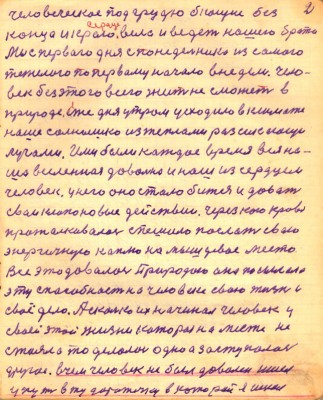 2
человеческое под грудю бющие без
сердце
конца и края, вело и ведет нашего брата
Мы с первого дня с понедельника из самого
тяжелого по первому начало в недели. чело-
век без этого всего жить не сможет в
природе, уже дня утром усходило в климате
наше солнышко из теплами разсискающи
лучами. Ими были каждое время вся на-
ша вселенная довольна и наш из сердцем
человек. у него оно стало битися и давать
свои клапоновые действии. через кою кровь
проталковалас спешило послать свою
энергичную каплю на мышцевое место
Все это довалос Природою она посылала
эту способность на человека свою жизнь и
своё дело. А сколко их начинал человек у
своей этой жизни которая на месте не
стояла то делалос одно а заступалос
другое. в чем человек не был доволен шел
у путь в ту дорожку в которой я шел